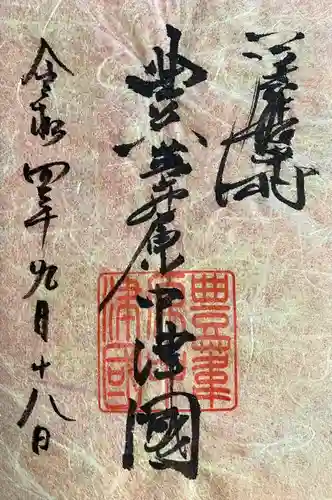 豊葦原中津國
令和四年九月十八日
豊葦
原中
津国